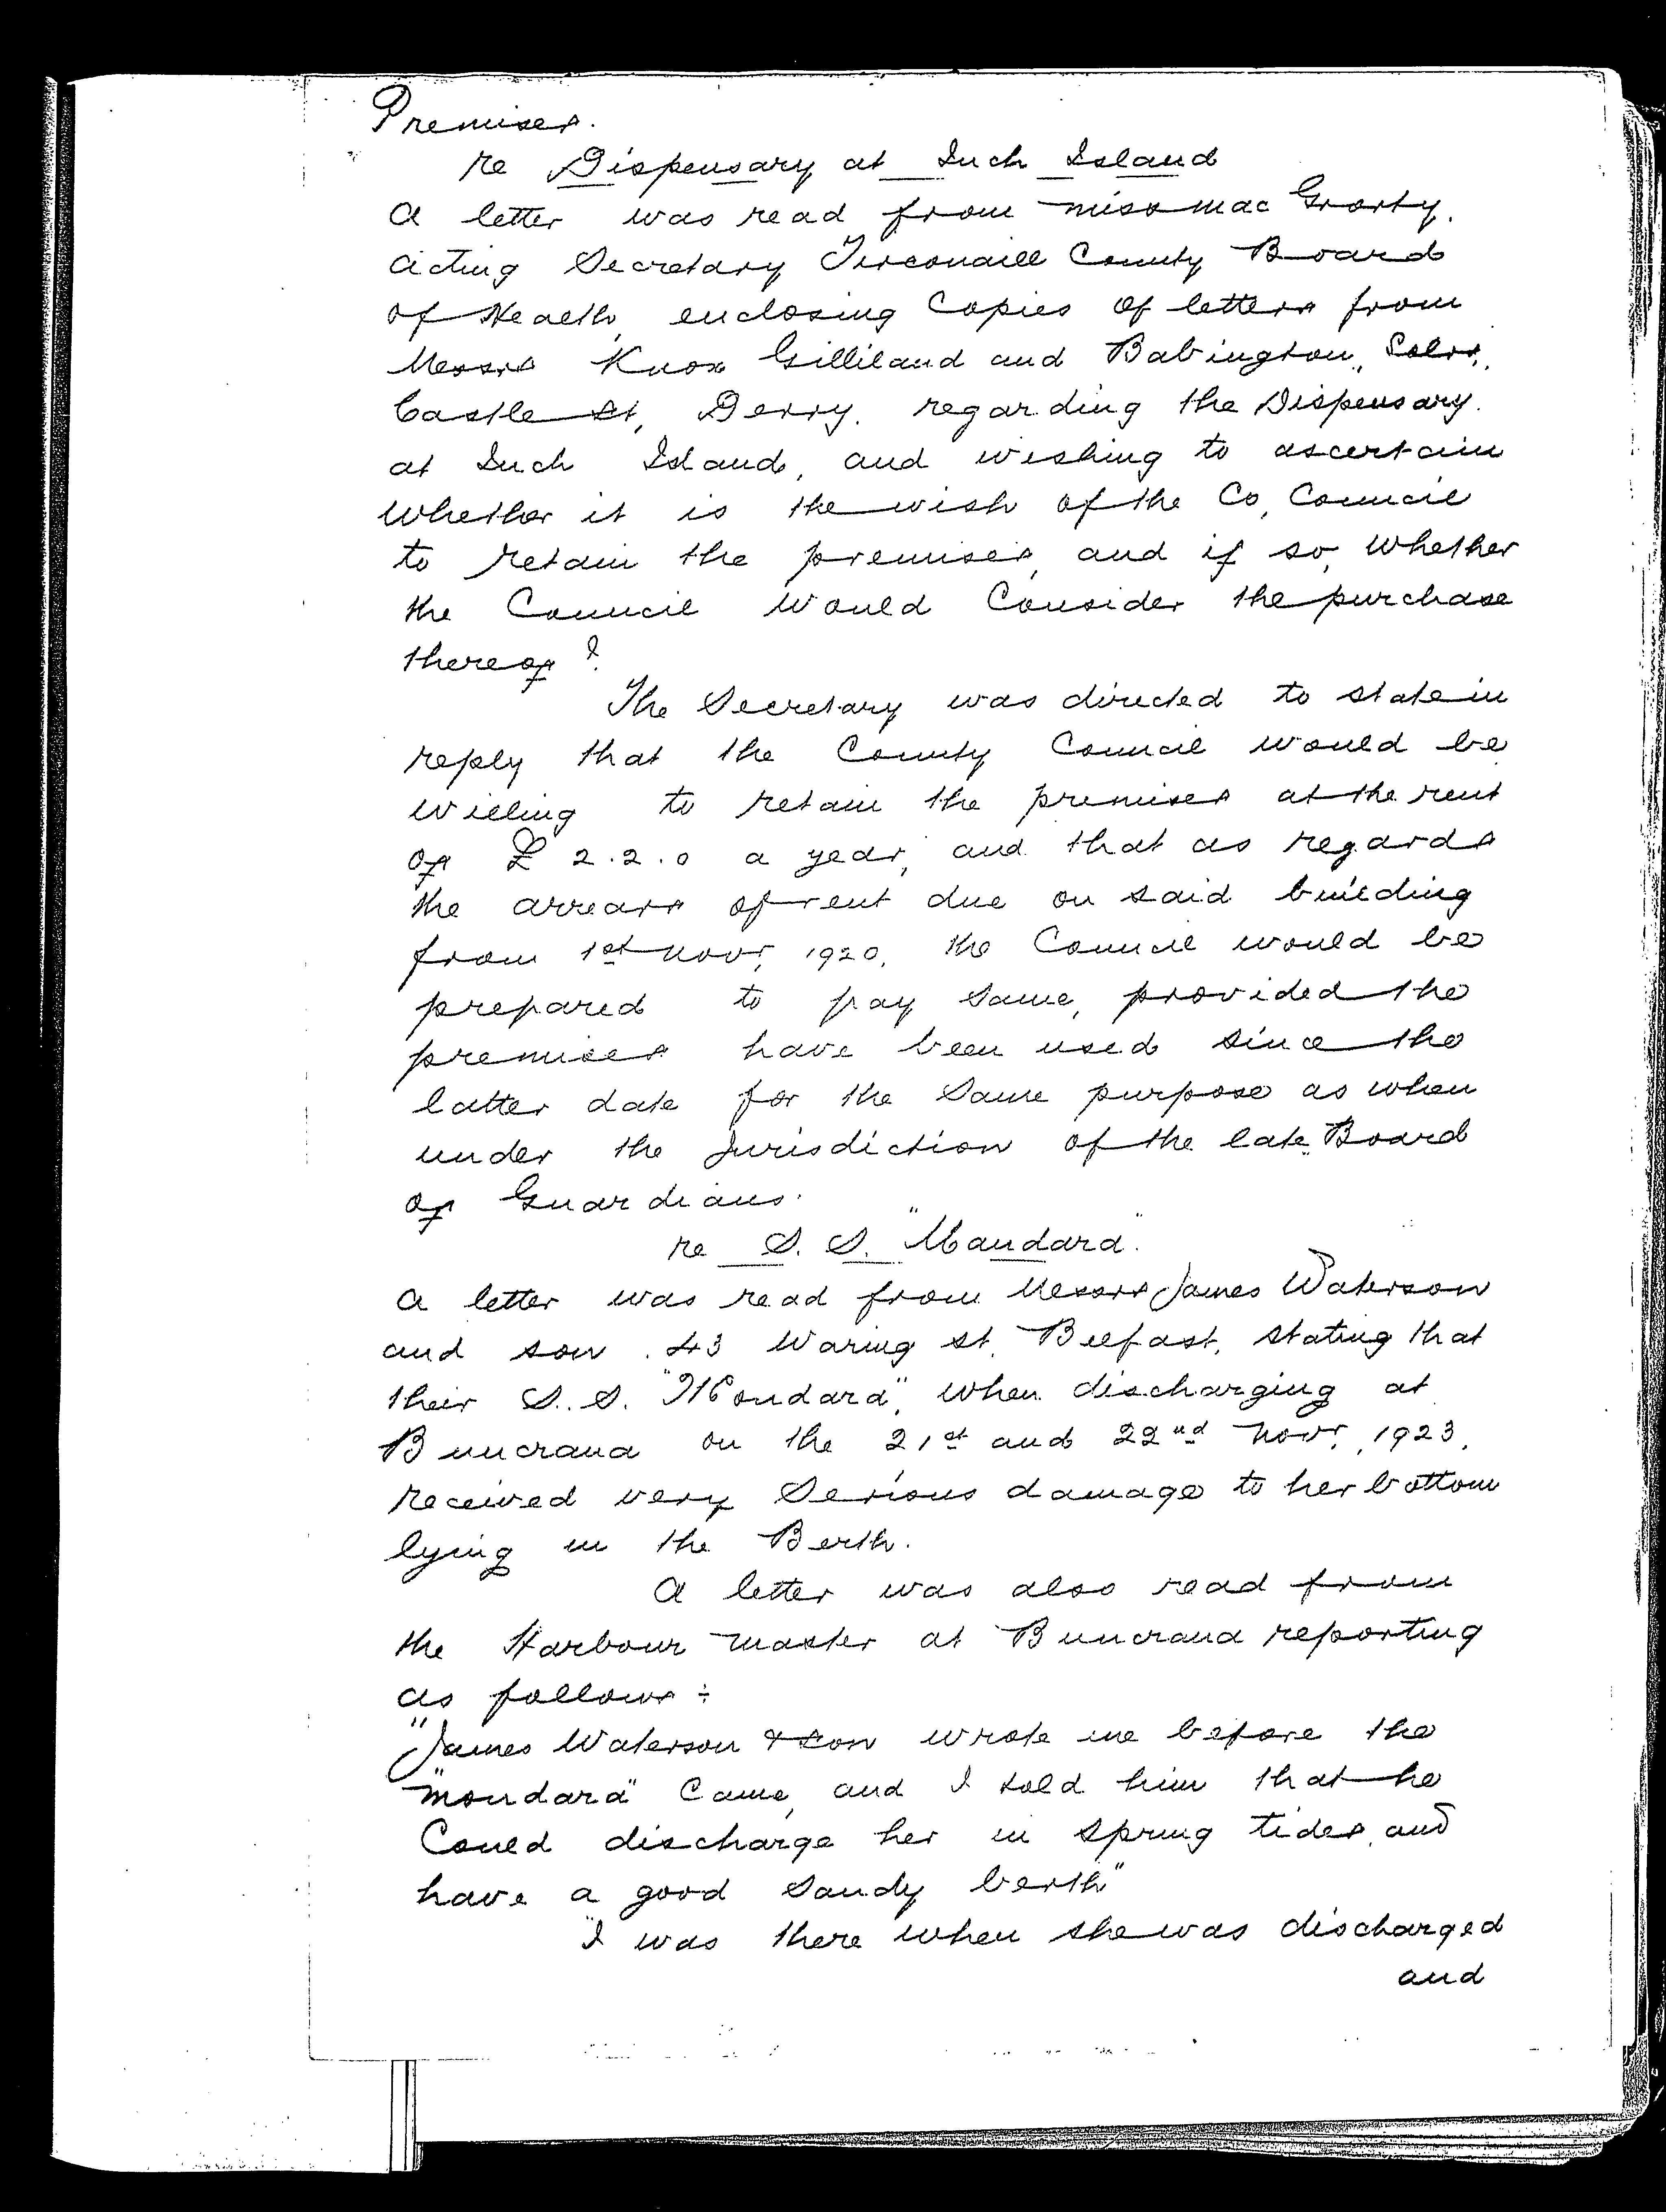 Premises.
re Dispensary at Inch Island
A letter was read from Miss Mac Grorty,
Acting Secretary Tirconaill County Board
of Health, enclosing Copies of letters from
Messrs Knox Gilliland and Babington, Solrs,
Castle St, Derry. regarding the Dispensary
at Inch Island, and wishing to ascertain
whether it is the wish of the Co, Council
to retain the premises, and if so, whether
the Council would Consider the purchase
thereof?
The Secretary was directed to state in
reply that the County Council would be
willing to retain the premises at the rent
of £ 2.2.0 a year, and that as regards
the arrears of rent due on said building
from 1st Novr, 1920, the Council would be
prepared to pay same, provided the
premises have been used since the
latter date for the same purpose as when
under the jurisdiction of the late Board
of Guardians.
re S. S. "Mandara".
A letter was read from Messrs James Waterson
and son . 43 Waring St, Belfast, stating that
their S. S. "Mondara", when discharging at
Buncrana on the 21st and 22nd Novr, 1923,
received very serious damage to her bottom
lying in the Berth.
A letter was also read from
the Harbour Master at Buncrana reporting
as follows ÷
"James Waterson & son wrote me before the
"Mondara" Came, and I told him that he
Could discharge her in spring tides, and
have a good sandy berth"
"I was there when she was discharged
and